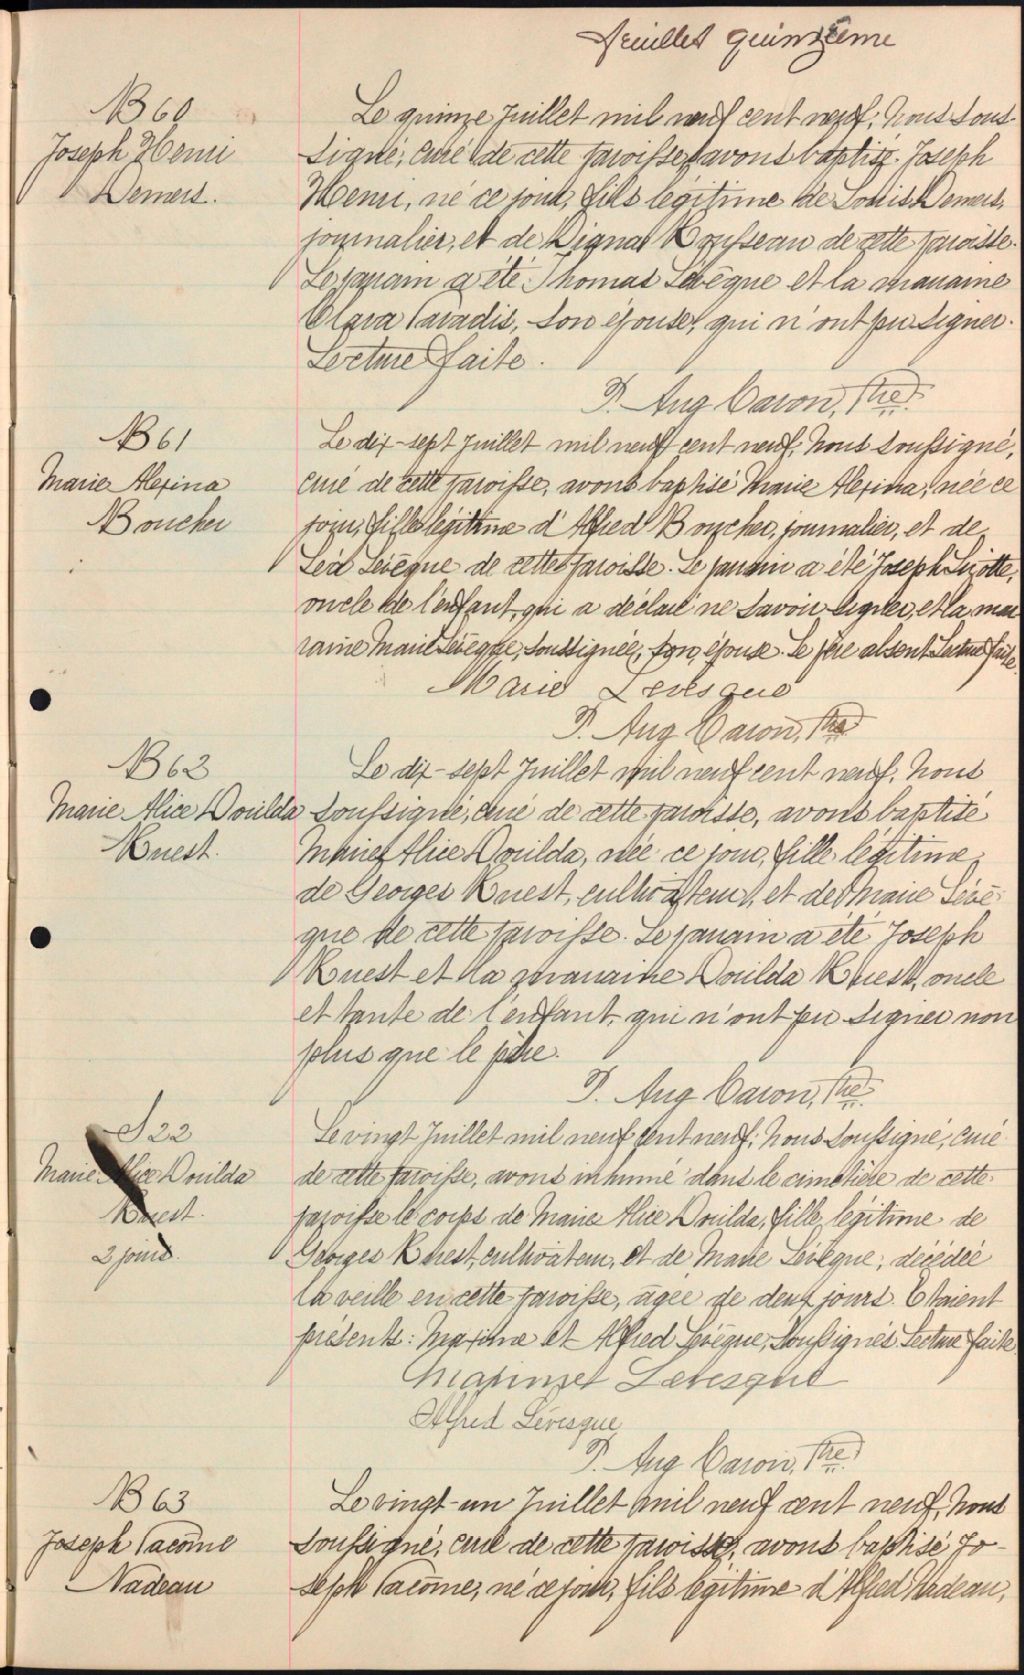 feuillet quinzième
B 60
Joseph Henri
Demers.
Le quinze Juillet mil neuf cent neuf, Nous sous-
signé, curé de cette paroisse, avons baptisé Joseph
Henri, né ce jour, fils légitime de Louis Demers,
journalier, et de Dignal Rousseau de cette paroisse.
Le parrain a été Thomas Lévêque et la marraine
Clara Paradis, son épouse, qui n'ont pu signer.
Lecture faite.
P. Aug Caron, Ptre
B 61
Marie Alexina
Boucher
Le dix-sept Juillet mil neuf cent neuf, Nous soussigné,
curé de cette paroisse, avons baptisé Marie Alexina, née ce
jour, fille légitime d'Alfred Boucher, journalier, et de
Léd Lévêque de cette paroisse. Le parrain a été Joseph Lizotte,
oncle de l'enfant, qui a déclaré ne savoir signer, et la mar
raine Marie Lévêque, soussignée, son épouse. Le père absent. Lecture faite.
Marie Levesque
P. Aug Caron, Ptre
B 62
Marie Alice Douilda
Ruest.
Le dix-sept Juillet mil neuf cent neuf, Nous
soussigné, curé de cette paroisse, avons baptisé
Marie Alice Douilda, née ce jour, fille légitime
de Georges Ruest, cultivateur, et de Marie Lévê-
que de cette paroisse. Le parrain a été Joseph
Ruest et la marraine Douilda Ruest, oncle
et tante de l'enfant, qui n'ont pu signer non
plus que le père.
P. Aug Caron, Ptre
S 22
Marie Alice Douilda
Ruest.
2 jours.
Le vingt Juillet mil neuf cent neuf, Nous soussigné, curé
de cette paroisse, avons inhumé dans le cimetière de cette
paroisse le corps de Marie Alice Douilda, fille légitime de
Georges Ruest, cultivateur, et de Marie Lévêque, décédée
la veille en cette paroisse, âgée de deux jours. Etaient
présents: Maxime et Alfred Lévêque, soussignés. Lecture faite.
Maxime Levesque
Alfred Lévesque
P. Aug Caron, Ptre
B 63
Joseph Pacôme
Nadeau
Le vingt-un Juillet mil neuf cent neuf, Nous
soussigné, curé de cette paroisse, avons baptisé Jo-
seph Pacôme, né ce jour, fils légitime d'Alfred Nadeau,